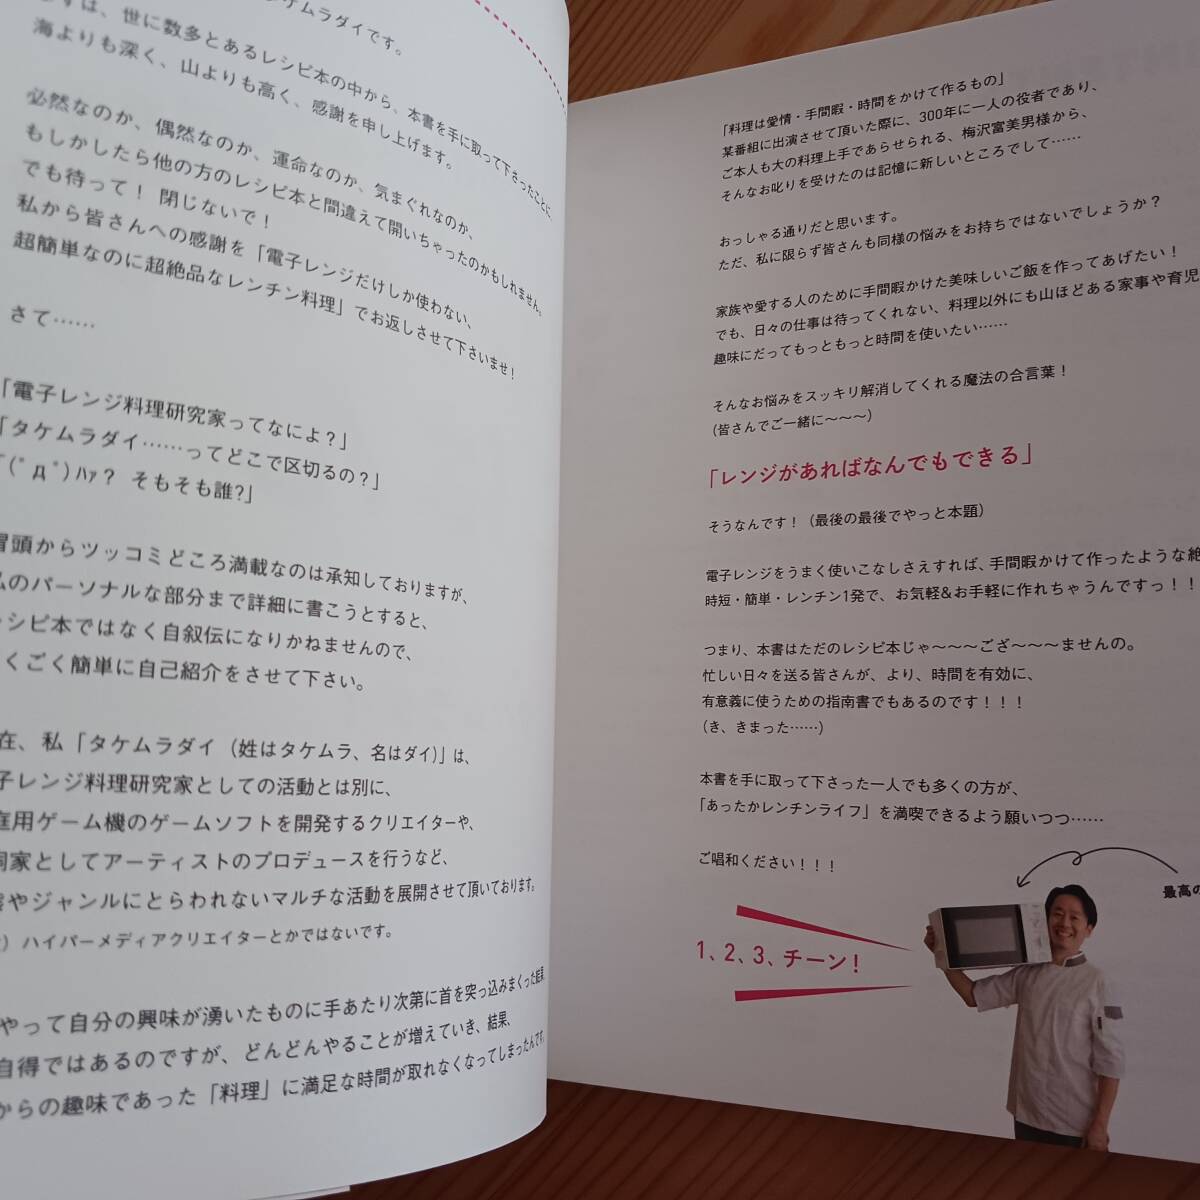 タケムラダイです。
は、世に数多とあるレシピ本の中から、本書を手に取って下さったことに、
海よりも深く、山よりも高く、感謝を申し上げます。
必然なのか、偶然なのか、運命なのか、気まぐれなのか、
もしかしたら他の方のレシピ本と間違えて開いちゃったのかもしれません。
でも待って！ 閉じないで！
私から皆さんへの感謝を「電子レンジだけしか使わない、
超簡単なのに超絶品なレンチン料理」でお返しさせて下さいませ！
さて……
「電子レンジ料理研究家ってなによ？」
「タケムラダイ……ってどこで区切るの？」
「(ﾟдﾟ)ﾊｧ？ そもそも誰?」
冒頭からツッコミどころ満載なのは承知しておりますが、
私のパーソナルな部分まで詳細に書こうとすると、
レシピ本ではなく自叙伝になりかねませんので、
くごく簡単に自己紹介をさせて下さい。
在、私「タケムラダイ（姓はタケムラ、名はダイ）」は、
子レンジ料理研究家としての活動とは別に、
庭用ゲーム機のゲームソフトを開発するクリエイターや、
詞家としてアーティストのプロデュースを行うなど、
やジャンルにとらわれないマルチな活動を展開させて頂いております。
）ハイパーメディアクリエイターとかではないです。
やって自分の興味が湧いたものに手あたり次第に首を突っ込みまくった結果、
自得ではあるのですが、どんどんやることが増えていき、結果、
からの趣味であった「料理」に満足な時間が取れなくなってしまったんです。
「料理は愛情・手間暇・時間をかけて作るもの」
某番組に出演させて頂いた際に、300年に一人の役者であり、
ご本人も大の料理上手であらせられる、梅沢富美男様から、
そんなお叱りを受けたのは記憶に新しいところでして……
おっしゃる通りだと思います。
ただ、私に限らず皆さんも同様の悩みをお持ちではないでしょうか？
家族や愛する人のために手間暇かけた美味しいご飯を作ってあげたい！
でも、日々の仕事は待ってくれない、料理以外にも山ほどある家事や育児
趣味にだってもっともっと時間を使いたい……
そんなお悩みをスッキリ解消してくれる魔法の合言葉！
(皆さんでご一緒に〜〜〜)
「レンジがあればなんでもできる」
そうなんです！（最後の最後でやっと本題）
電子レンジをうまく使いこなしさえすれば、手間暇かけて作ったような絶
時短・簡単・レンチン1発で、お気軽&お手軽に作れちゃうんですっ！！
つまり、本書はただのレシピ本じゃ〜〜〜ござ〜〜〜ませんの。
忙しい日々を送る皆さんが、より、時間を有効に、
有意義に使うための指南書でもあるのです！！！
（き、きまった……）
本書を手に取って下さった一人でも多くの方が、
「あったかレンチンライフ」を満喫できるよう願いつつ……
ご唱和ください！！！
1、2、3、チーン！
最高の